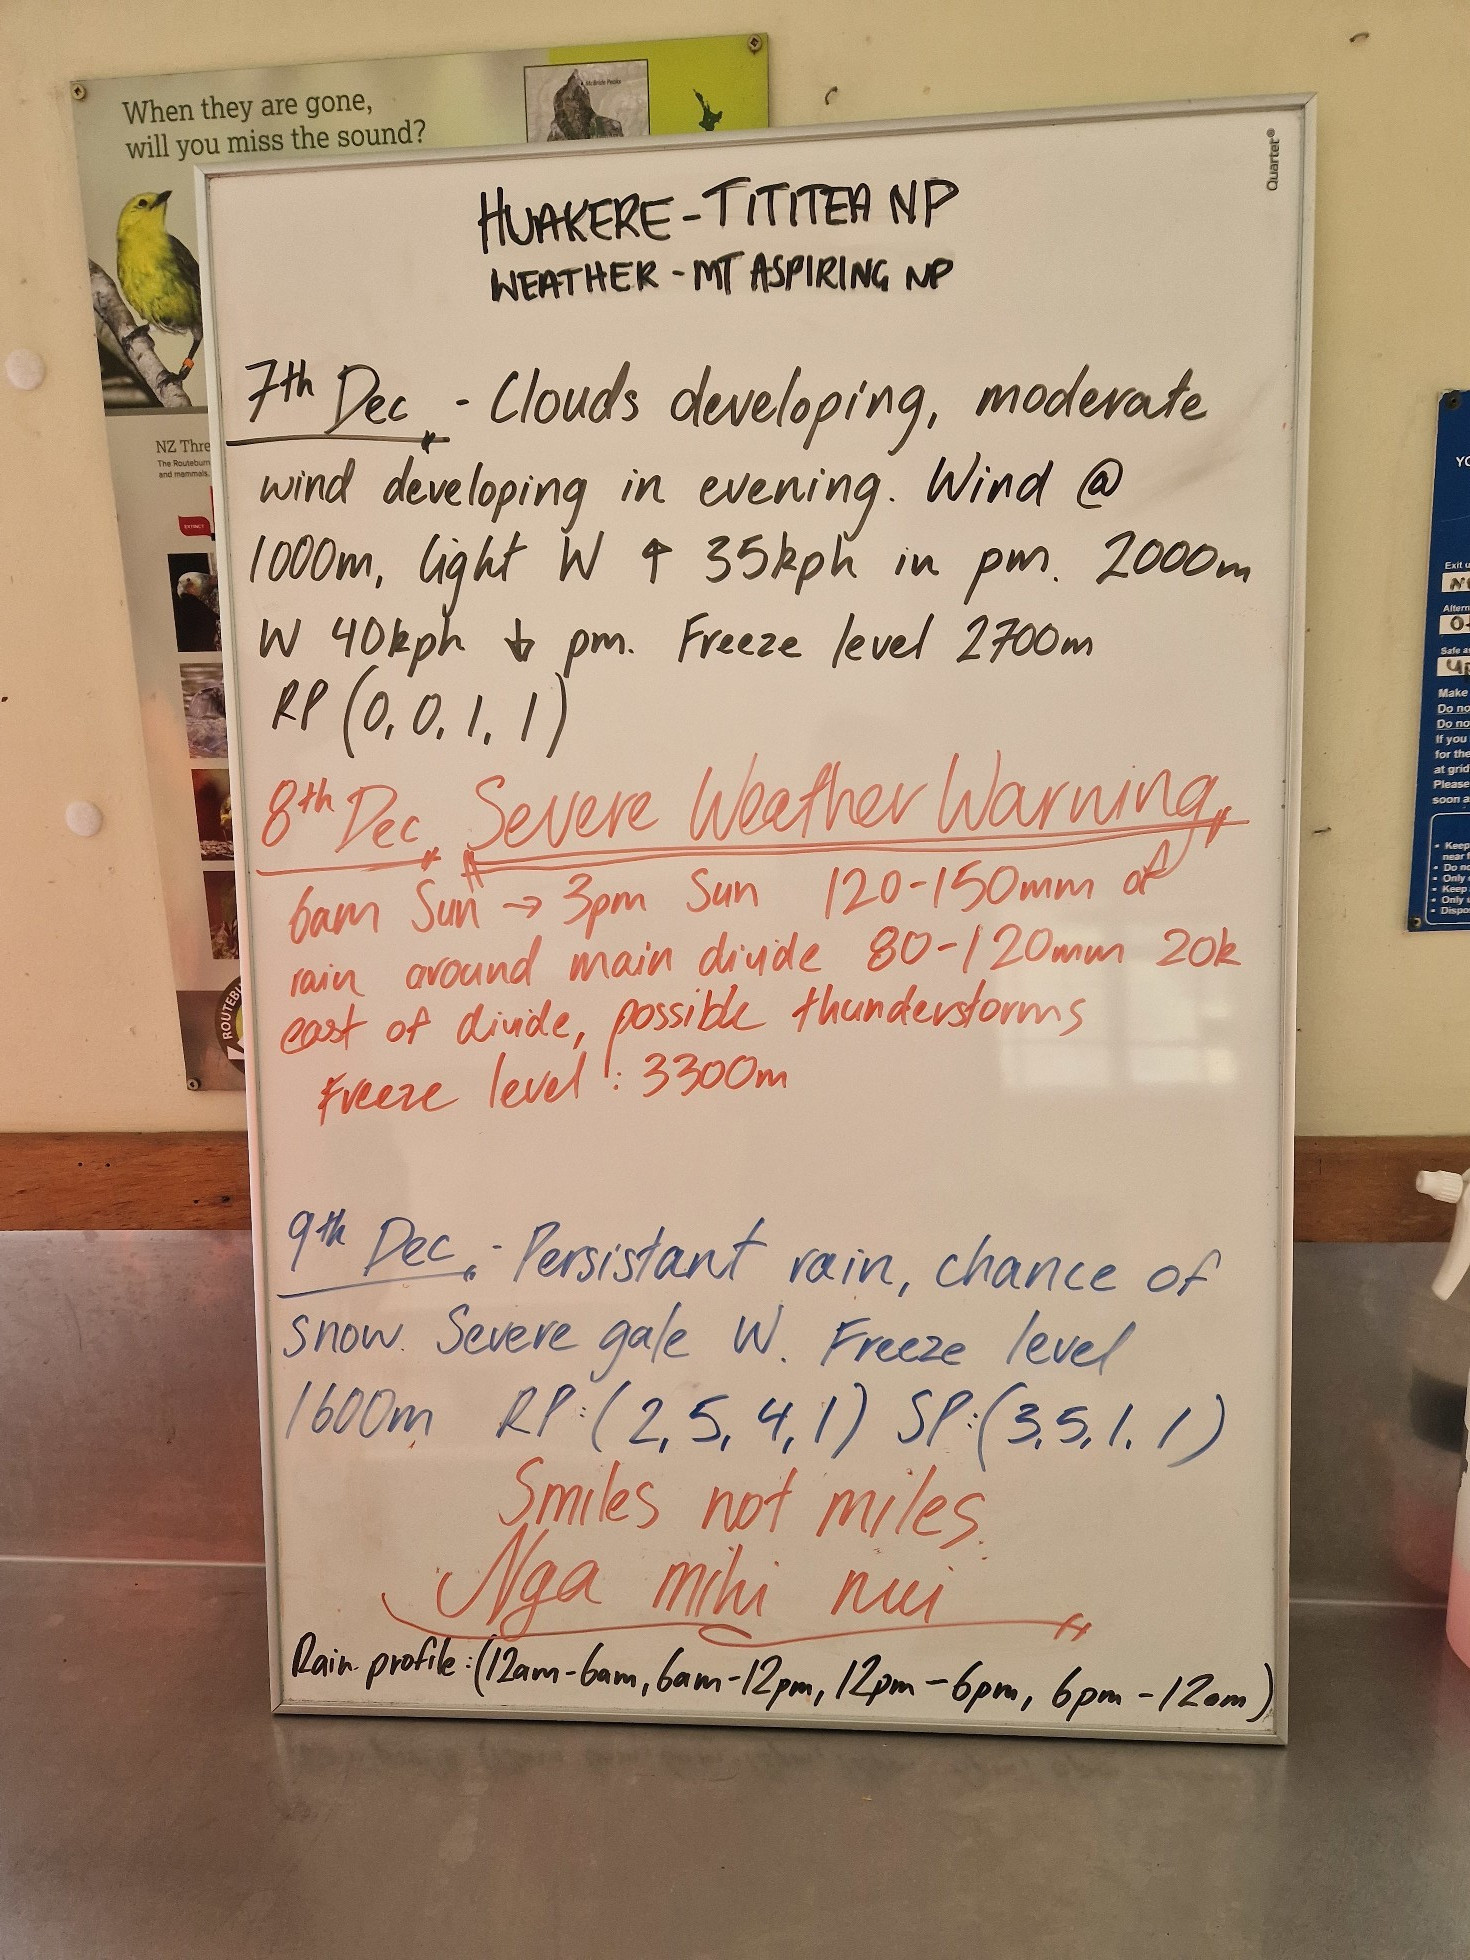 When they are gone,
will you miss the sound?
McBride Peaks
Quartet®
HUAKERE-TITITEA NP
WEATHER - MT ASPIRING NP
7th Dec - Clouds developing, moderate
wind developing in evening. Wind @
1000m, light W ↑ 35kph in pm. 2000m
W 40kph ↓ pm. Freeze level 2700m
RP (0, 0, 1, 1)
8th Dec Severe Weather Warning
6am Sun → 3pm Sun 120-150mm of
rain around main divide 80-120mm 20k
east of divide, possible thunderstorms
Freeze level: 3300m
9th Dec - Persistant rain, chance of
snow. Severe gale W. Freeze level
1600m RP: (2, 5, 4, 1) SP: (3, 5, 1, 1)
Smiles not miles.
Nga mihi nui
Rain profile: (12am-6am, 6am-12pm, 12pm-6pm, 6pm-12am)
NZ Thre
The Routeburn
and mammals.
EXTINCT
ROUTEBU
YO
Exit u
Altern
Safe a
Make
Do no
Do no
If you
for the
at grid
Please
soon a
• Keep
near f
• Do no
• Only
• Keep
• Only
• Dispo